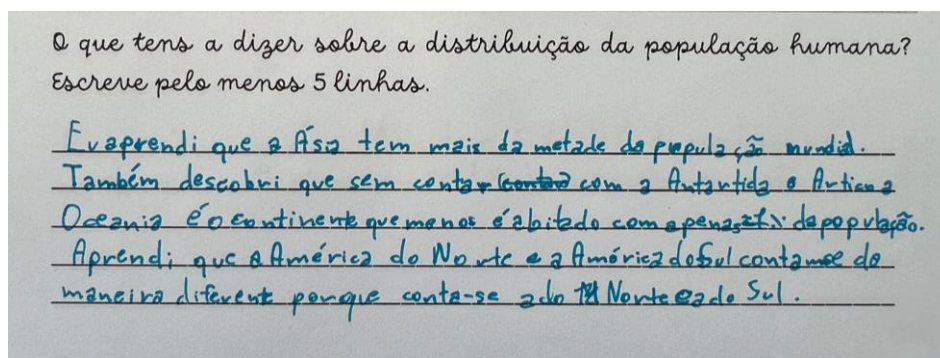 O que tens a dizer sobre a distribuição da população humana?
Escreve pelo menos 5 linhas.
Eu aprendi que a Ásia tem mais da metade da população mundial.
Também descobri que sem contar (contar) com a Antartida e Artico a
Oceania é o continente que menos é abitado com apenas da população.
Aprendi que a América do Norte e a América do Sul contamse de
maneira diferent porque conta-se a do Norte e a do Sul.